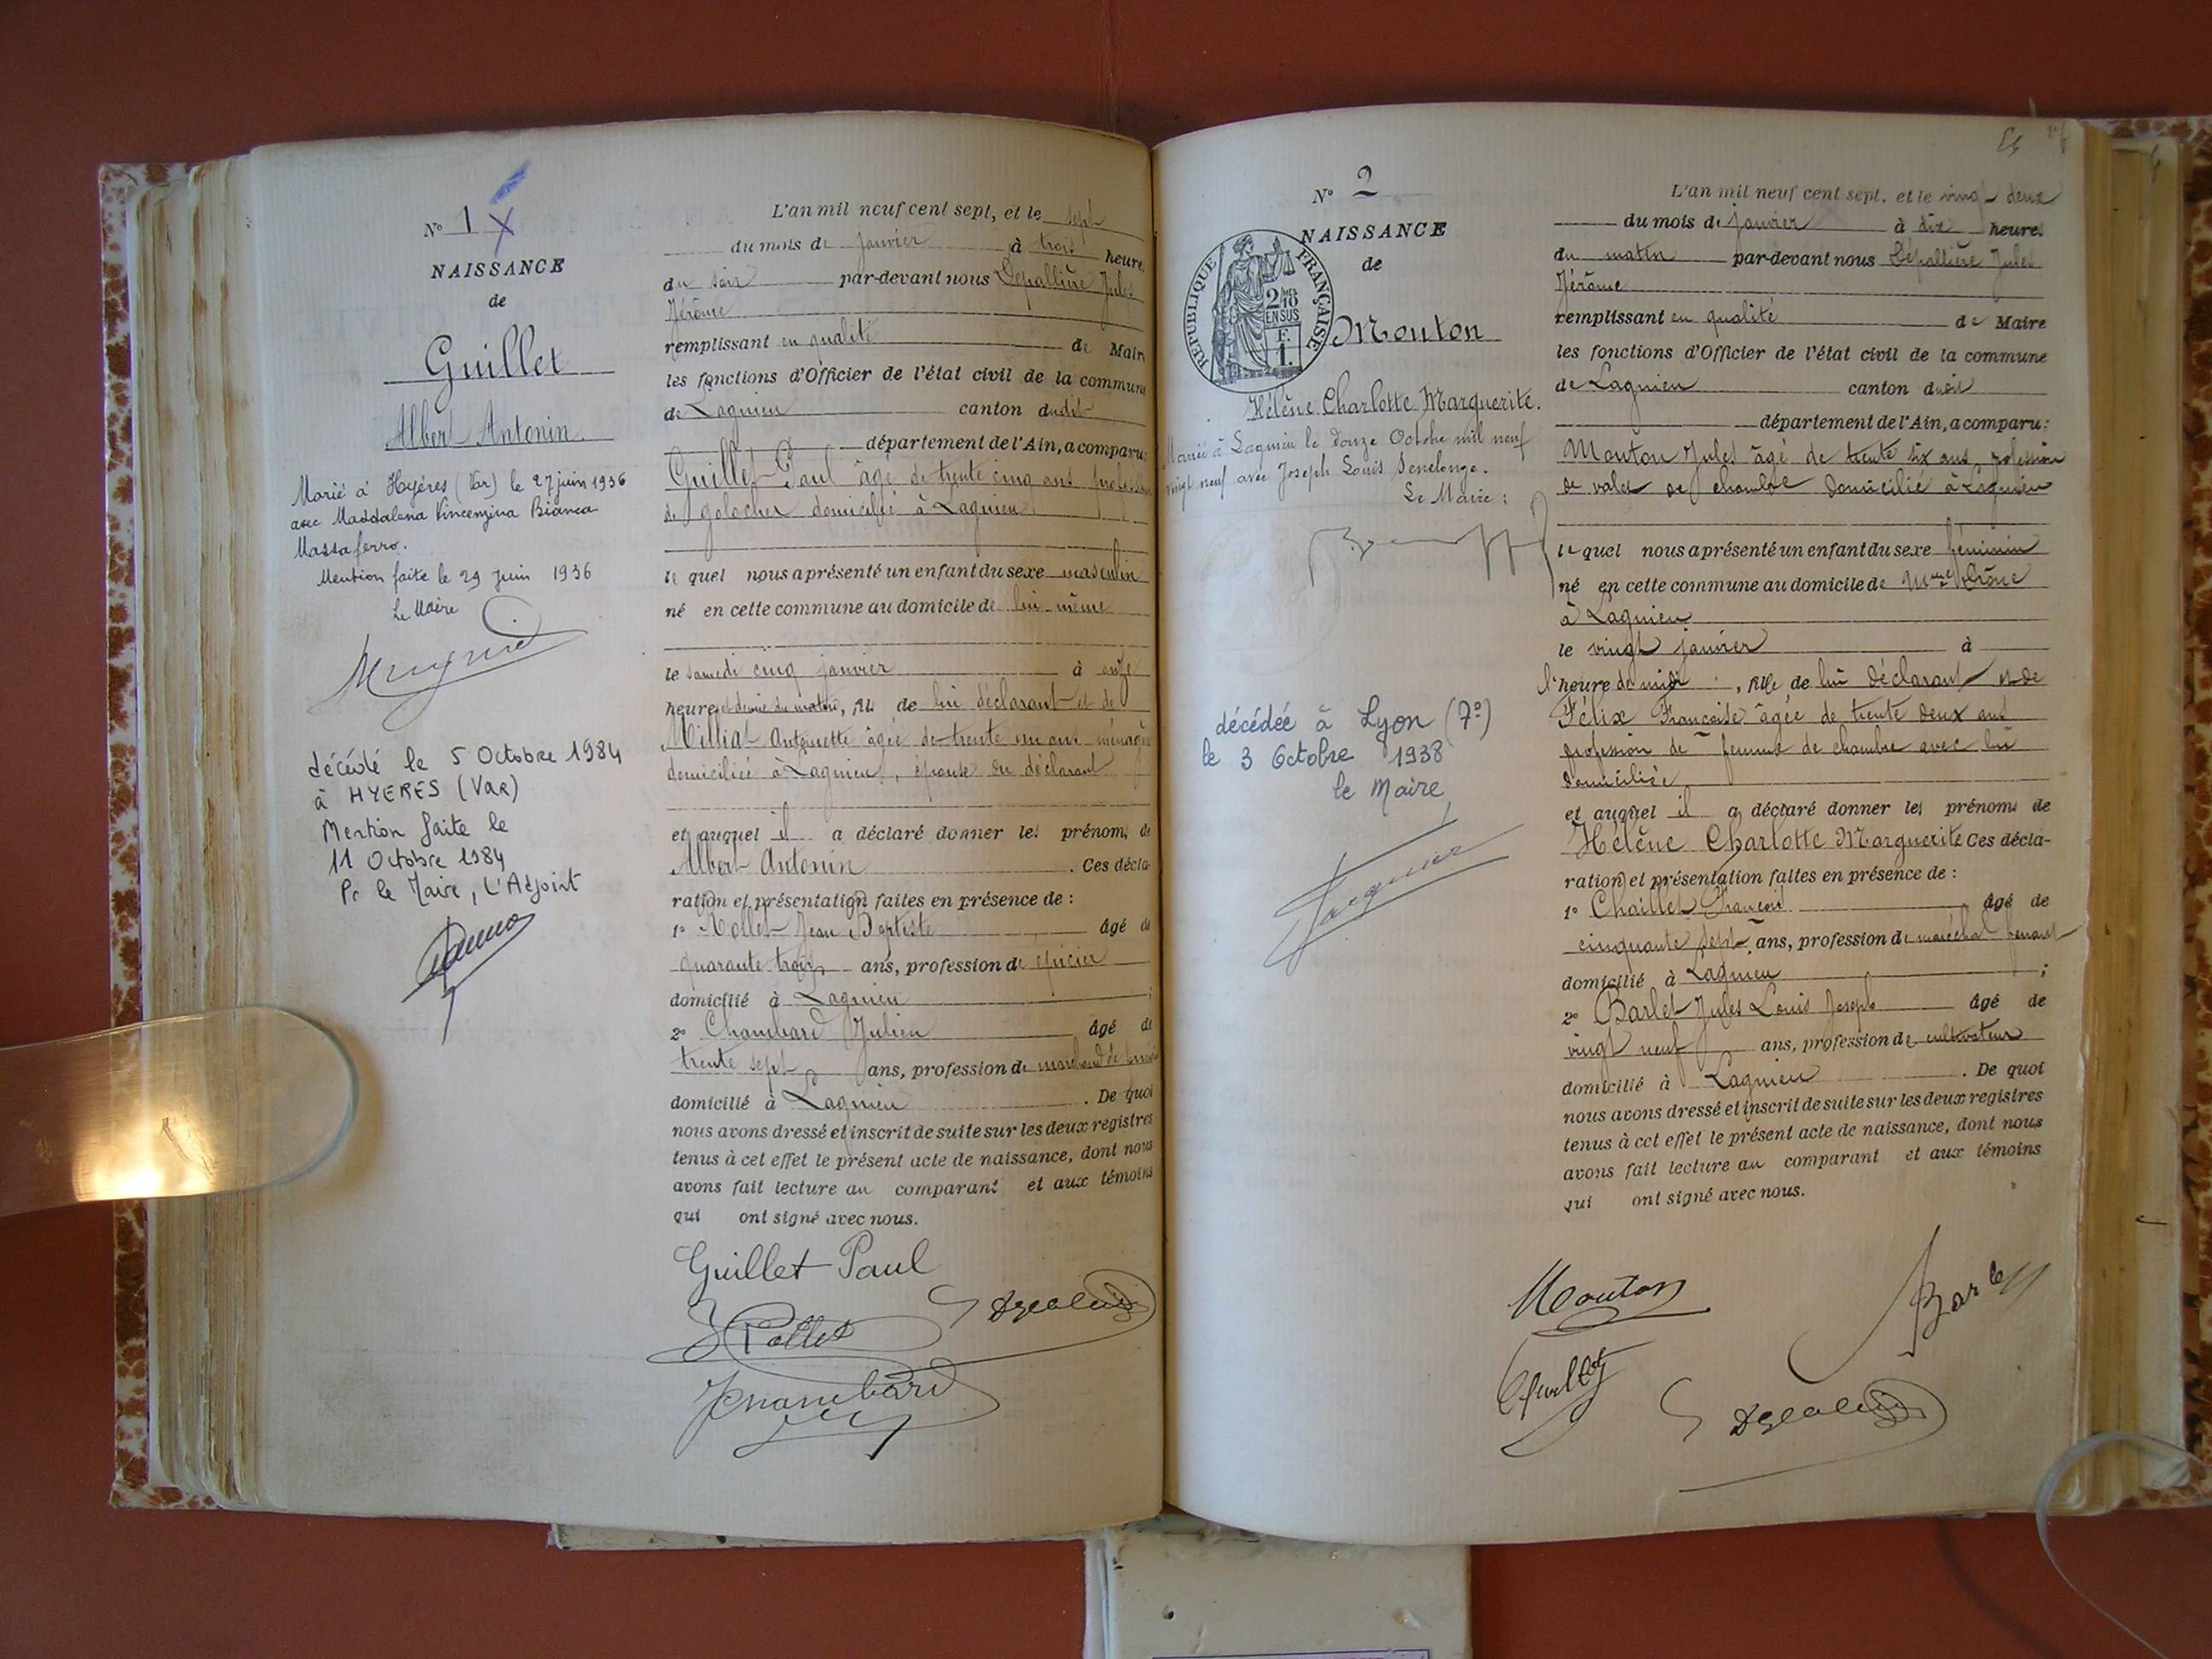 N° 1 X
NAISSANCE
de
Guillet
Albert Antonin.
Marié à Hyères (Var) le 27 juin 1936
avec Maddalena Vincenzina Bianca
Massaferro.
Mention faite le 29 juin 1936
Le Maire
décédé le 5 Octobre 1984
à HYERES (VAR)
Mention faite le
11 Octobre 1984
Pr le Maire, L'Adjoint
L'an mil neuf cent sept, et le sept
du mois de janvier à trois heures
du soir par-devant nous Dépallière Jules
Jérôme
remplissant en qualité de Maire
les fonctions d'Officier de l'état civil de la commune
de Lagnieu canton dudit
département de l'Ain, a comparu:
Guillet Paul âgé de trente cinq ans profession
de galocher domicilié à Lagnieu
le quel nous a présenté un enfant du sexe masculin
né en cette commune au domicile de lui-même
le samedi cinq janvier à onze
heures et demie du matin, fils de lui déclarant et de
Milliat Antoinette âgée de trente un ans ménagère
domiciliée à Lagnieu, épouse du déclarant
et auquel il a déclaré donner les prénoms de
Albert Antonin . Ces décla-
ration et présentation faites en présence de :
1° Rollet Jean Baptiste âgé de
quarante trois ans, profession de épicier
domicilié à Lagnieu ;
2° Chambard Julien âgé de
trente sept ans, profession de marchand de
domicilié à Lagnieu . De quoi
nous avons dressé et inscrit de suite sur les deux registres
tenus à cet effet le présent acte de naissance, dont nous
avons fait lecture au comparant et aux témoins
qui ont signé avec nous.
Guillet Paul
J Rollet
JChambard
N° 2
NAISSANCE
de
RÉPUBLIQUE FRANÇAISE
2/10 EN SUS
F. 1.
Mouton
Hélène Charlotte Marguerite.
Mariée à Lagnieu le douze Octobre mil neuf
vingt neuf avec Joseph Louis Senelonge.
Le Maire :
décédée à Lyon (7°)
le 3 Octobre 1938
le Maire,
L'an mil neuf cent sept, et le vingt deux
du mois de janvier à dix heures
du matin par-devant nous Dépallière Jules
Jérôme
remplissant en qualité de Maire
les fonctions d'Officier de l'état civil de la commune
de Lagnieu canton dudit
département de l'Ain, a comparu:
Mouton Jules âgé de trente six ans, profession
de valet de chambre domicilié à Lagnieu
le quel nous a présenté un enfant du sexe féminin
né en cette commune au domicile de Mme
à Lagnieu
le vingt janvier à
l'heure de midi , fille de lui déclarant et de
Félix Françoise âgée de trente deux ans
profession de femme de chambre avec lui
domiciliée
et auquel il a déclaré donner les prénoms de
Hélène Charlotte Marguerite Ces décla-
ration et présentation faites en présence de :
1° Chaillet François âgé de
cinquante sept ans, profession de maréchal ferrant
domicilié à Lagnieu ;
2° Barlet Jules Louis Joseph âgé de
vingt neuf ans, profession de cultivateur
domicilié à Lagnieu . De quoi
nous avons dressé et inscrit de suite sur les deux registres
tenus à cet effet le présent acte de naissance, dont nous
avons fait lecture au comparant et aux témoins
qui ont signé avec nous.
Mouton
Barlet